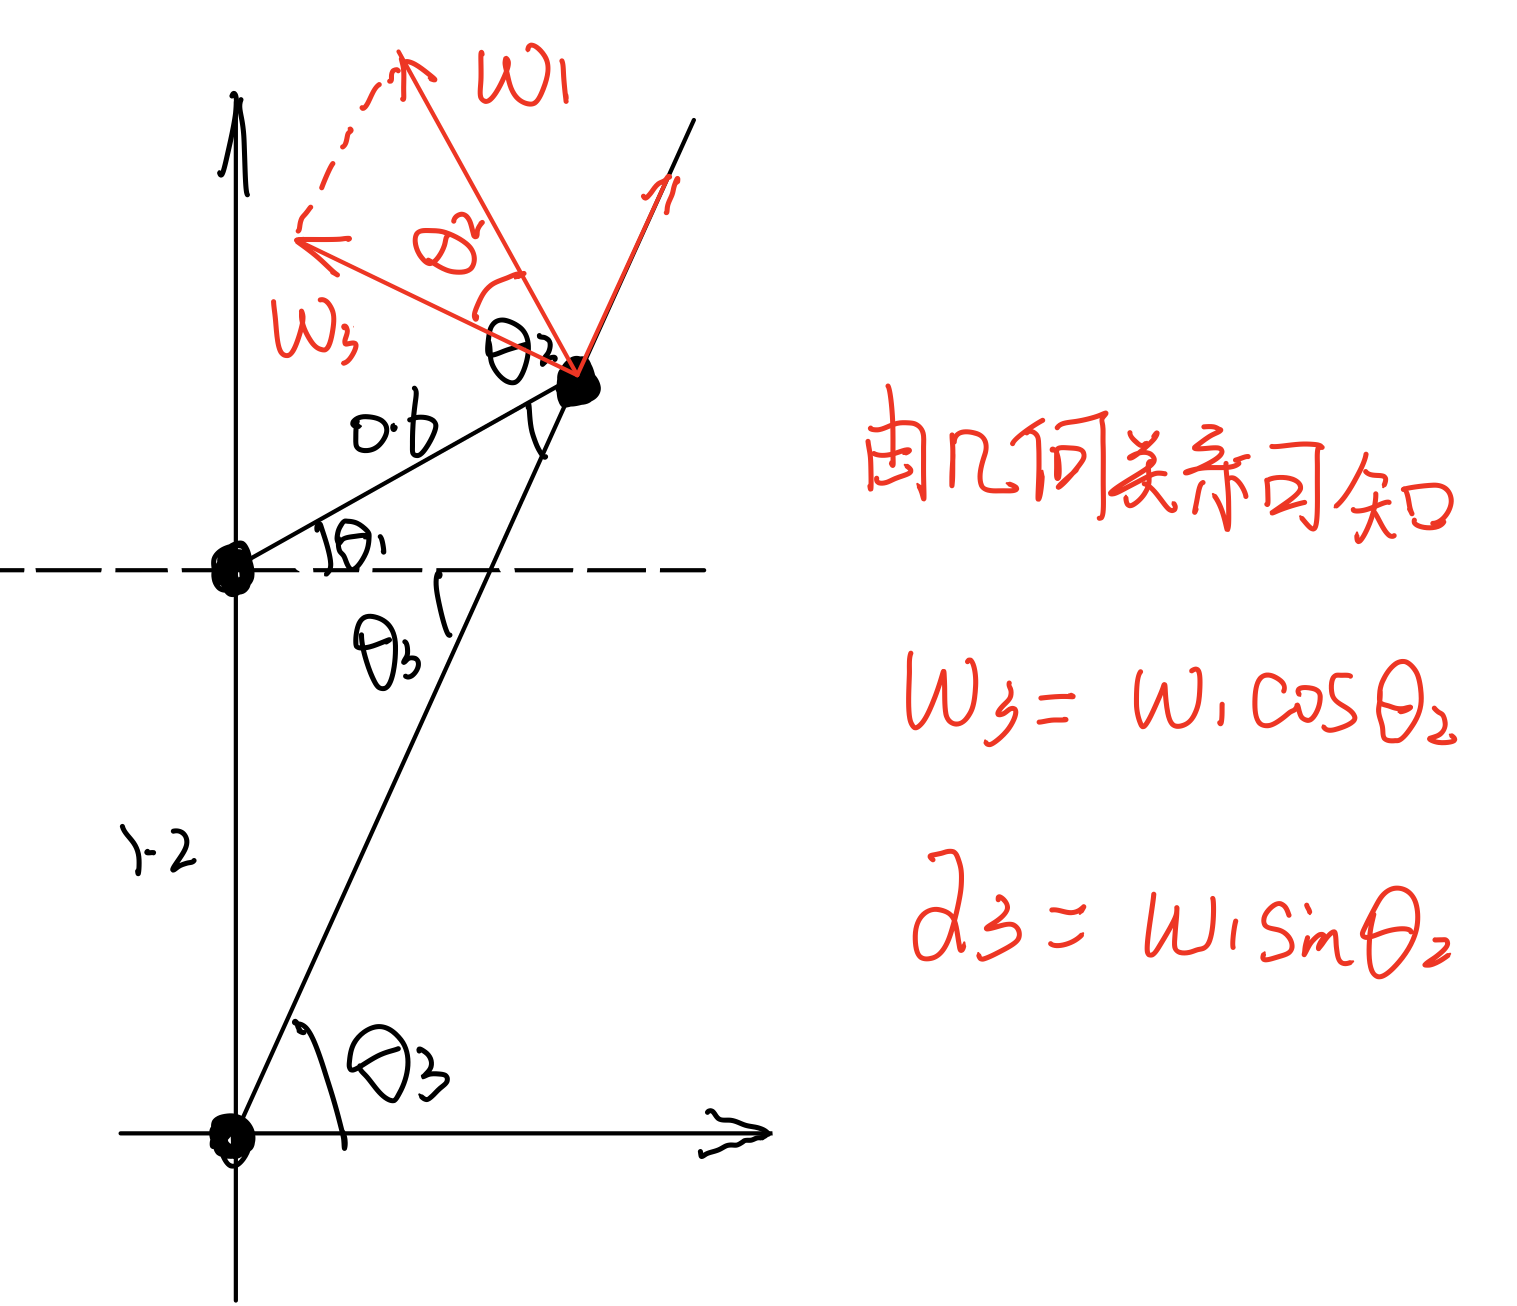 w1
θ2
w3
θ2
0.6
θ1
θ3
1.2
θ3
由几何关系可知
w3 = w1 cosθ2
a3 = w1 sinθ2